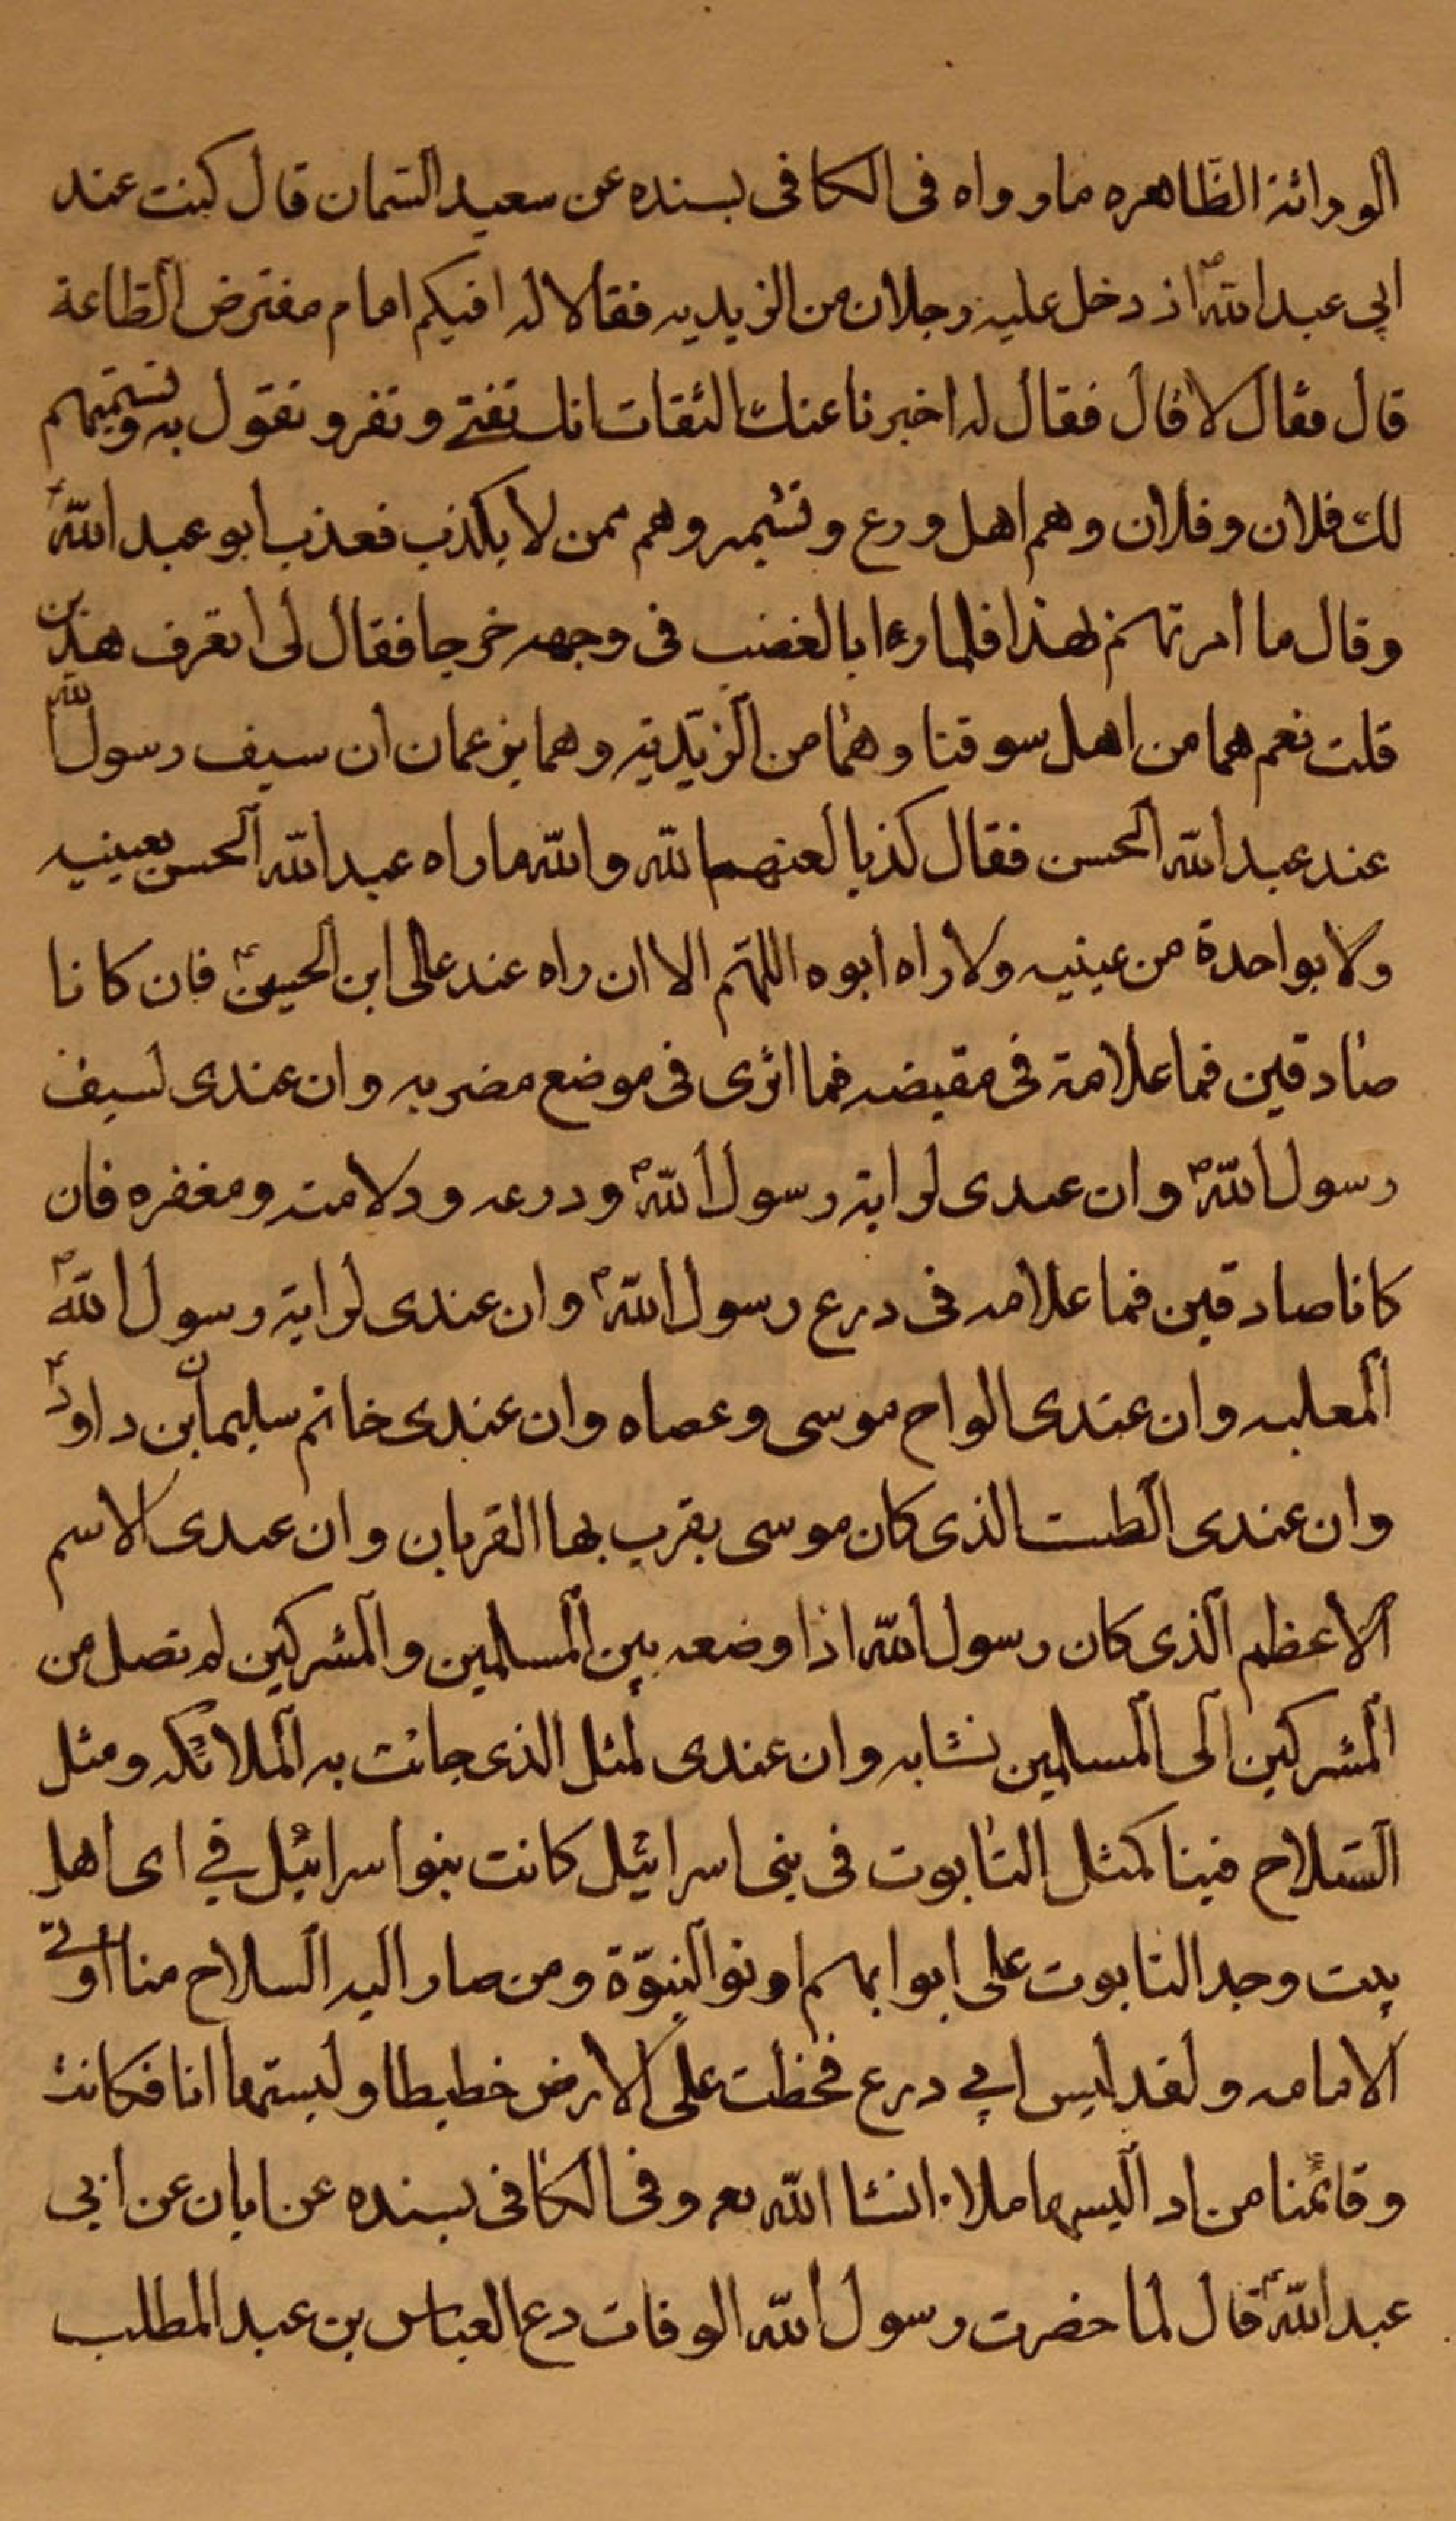 الوراثة الظاهره ما رواه فى الكافى بسنده عن سعيد السّمان قال كنت عند
ابي عبد اللهؑ اذ دخل عليه رجلان من الزيديه فقالا له افيكم امام مفترض الطّاعة
قال فقال لا قال فقال له اخبرنا عنك الثقات انك تفتے وتقر وتقول به ونسمّيهم
لك فلان وفلان وهم اهل ورع وتشمير وهم ممن لا يكذب فغذب ابو عبد اللهؑ
وقال ما امرتهم بهذا فلما رءا بالغضب فى وجهه خرجا فقال لى اتعرف هذين
قلت نعم هما من اهل سوقنا وهما من الزيّديّه وهما يزعمان ان سيف رسول الله
عند عبد الله الحسن فقال كذبا لعنهما لله والله ما راه عبد الله الحسن بعينيه
ولا بواحدة من عينيه ولا راه ابوه اللهّم الا ان راه عند على ابن الحسينؑ فان كانا
صادقين فما علامة فى مقبضه فما اثرى فى موضع مضربه وان عندى لسيف
رسول اللهؐ وان عندى لراية رسول اللهؐ ودرعه ودلامته ومغفره فان
كانا صادقين فما علامه فى درع رسول اللهؐ وان عندى لراية رسول اللهؐ
المعلبه وان عندى الواح موسى وعصاه وان عندى خاتم سليمان بن داودؑ
وان عندى الطست الذى كان موسى يقرب بها القربان وان عندى الاسم
الاعظم الّذى كان رسول الله اذا وضعه بين المسلمين والمشركين لم تصل من
المشركين الى المسلمين نشابه وان عندى لمثل الذى جائت به الملائكه ومثل
السّلاح فينا كمثل التابوت فى بنى اسرائيل كانت بنوا سرائيل في اى اهل
بيت وجد التابوت على ابوابهم اوتوا النبوّة ومن صار اليه السلاح منا اوتے
الامامه ولقد لبس ابي درع فخطت على الارض خطيطا ولبستها انا فكانت
وقائمنا من اد البسهاملاء انشا الله تعم وفى الكافى بسنده عن ابان عن ابى
عبد اللهؑ قال لما حضرت رسول الله الوفات دع العباس بن عبد المطلب